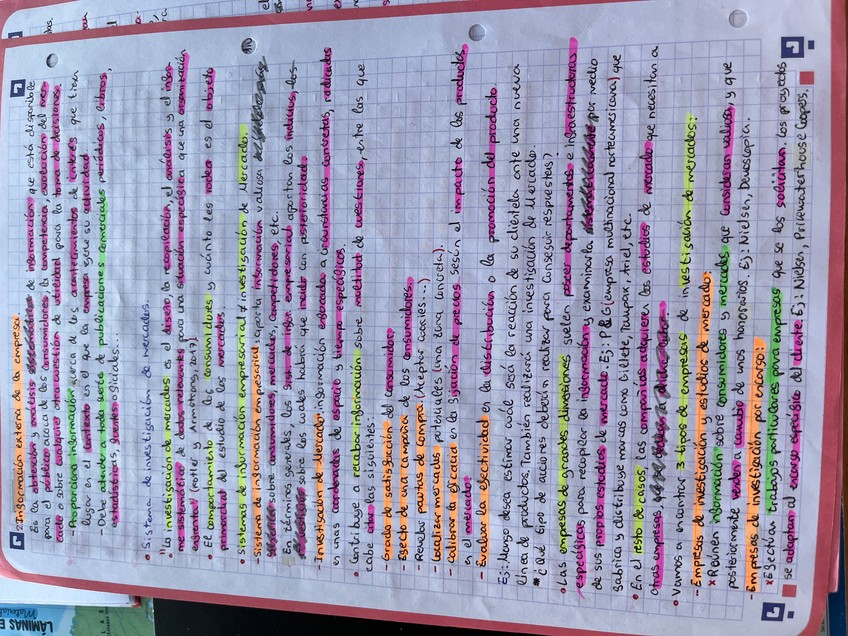 2. Información externa de la empresa:
Es la obtención y análisis de información que está disponible
para el público acerca de los consumidores, la competencia, evolución del mer-
cado o sobre cualquier otra cuestión de utilidad para la toma de decisiones.
- Proporciona información acerca de los acontecimientos de interés que tienen
lugar en el contexto en el que la empresa ejerce su actividad.
- Debe atender a toda suerte de publicaciones comerciales periódicas, libros,
estadísticas, fuentes oficiales...
• Sistema de investigación de mercados.
• "La investigación de mercados es el diseño, la recopilación, el análisis y el infor-
me sistemático de datos relevantes para una situación específica que una organización
enfrenta" (Kotler y Armstrong, 2017)
• El comportamiento de los consumidores y cuánto les rodea es el objeto
primordial del estudio de los mercados.
• Sistemas de información empresarial ≠ investigación de Mercado.
- Sistema de información empresarial: aporta información valiosa
sobre consumidores, mercados, competidores, etc.
En términos generales, los Sist. de infor. empresarial aportan los indicios, los
sobre los cuales habrá que incidir con posterioridad.
- Investigación de Mercado: información enfocada a circunstancias concretas, radicadas
en unas coordenadas de espacio y tiempo específicas.
• Contribuye a recabar información sobre multitud de cuestiones, entre las que
cabe citar las siguientes:
- Grado de satisfacción del consumidor.
- Efecto de una campaña de los consumidores.
- Revelar pautas de compra (Aceptar cookies...)
- Localizar mercados potenciales (una zona concreta).
- Calibrar la eficacia en la fijación de precios según el impacto de los productos
en el mercado.
- Evaluar la efectividad en la distribución o la promoción del producto
Ej: Mango desea estimar cuál será la reacción de su clientela ante una nueva
línea de productos. También realizará una investigación de Mercado.
* ¿Qué tipo de acciones deberían realizar para conseguir respuestas?
• Las empresas de grandes dimensiones suelen poseer departamentos e infraestructuras
específicas para recopilar la información y examinarla por medio
de sus propios estudios de mercado. Ej: P&G (empresa multinacional norteamericana) que
fabrica y distribuye marcas como Gillete, Tampax, Ariel, etc.
• En el resto de casos, las compañías adquieren los estudios de mercado que necesitan a
otras empresas
• Vamos a encontrar 3 tipos de empresas de investigación de mercados:
- Empresas de investigación y estudios de mercado:
* Reúnen información sobre consumidores y mercados que consideran valiosa, y que
posteriormente venden a cambio de unos honorarios. Ej: Nielsen, Demoscopia.
- Empresas de investigación por encargo:
* Efectúan trabajos particulares para empresas que se los solicitan. Los proyectos
se adaptan al encargo específico del cliente. Ej: Nielsen, Pricewaterhouse Coopers.
LÁMINAS E